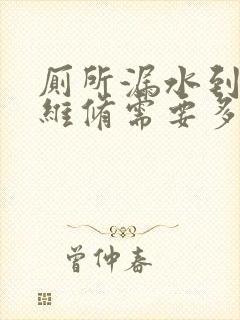 厕所漏水到
维修需要多
曾仲春